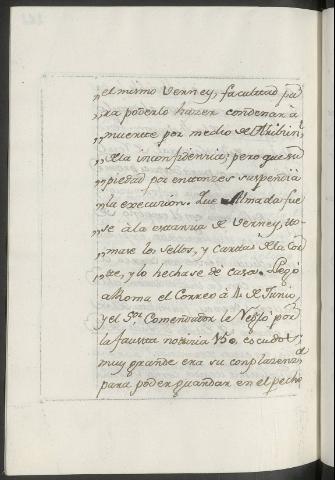 „el mismo Verney, facultad pa
„ra poderlo hacer condenar à
„muerte por medio del Tribun.l
„de la inconfidencia; pero que su
„piedad por entonces suspendia
„la execucion. Que Almada fue
„se à la estancia de Verney, to-
„mase los sellos, y cartas de la Cor
„te, y lo hechase de casa. Llegó
a Roma el Correo à 11 de Junio
y el S.or Comendador le regló por
la fausta noticia 150 escudos,
muy grande era su conplazenz.a
para poder guardar en el pecho